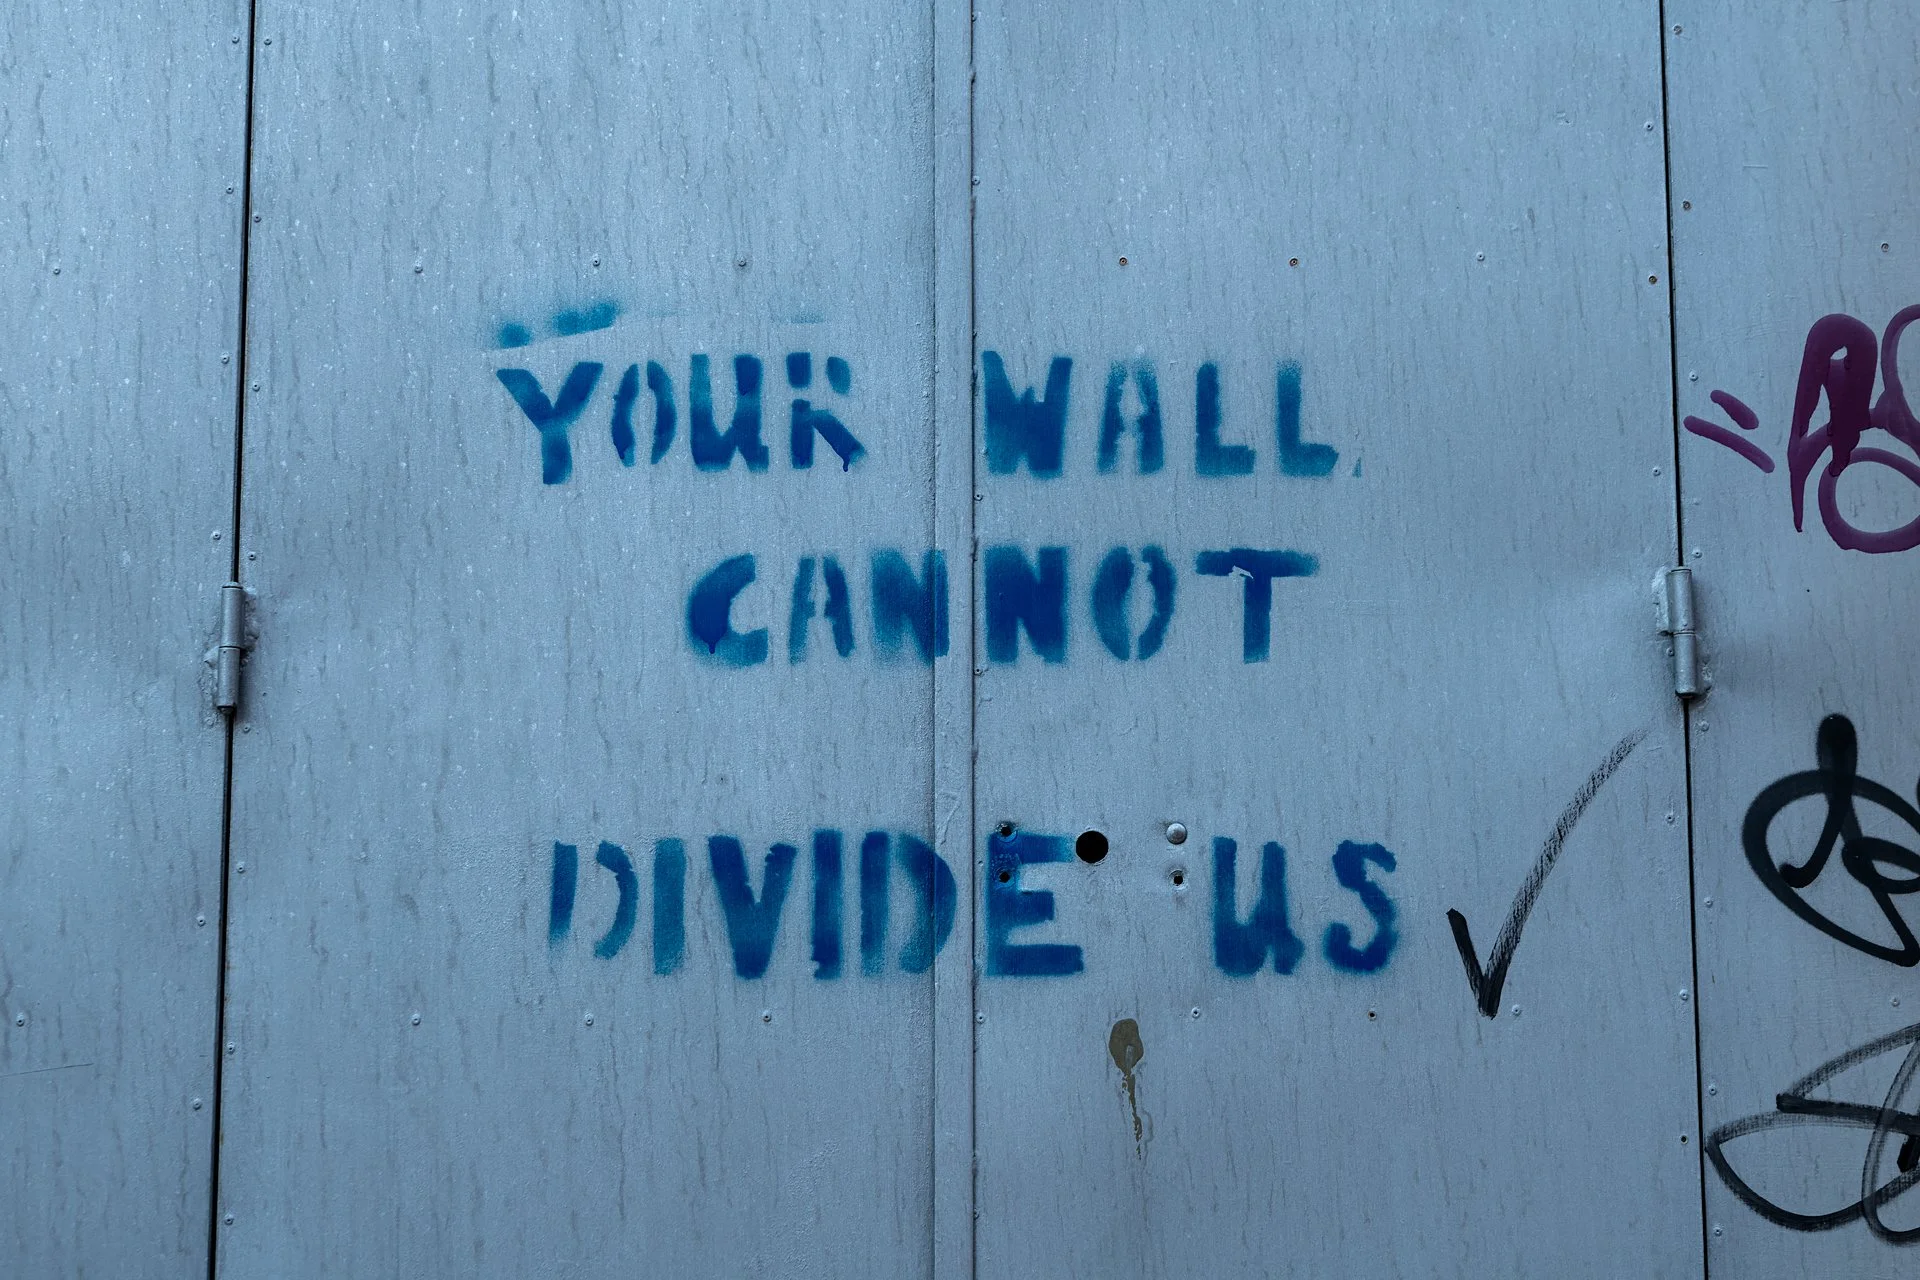 YOUR WALL
CANNOT
DIVIDE US